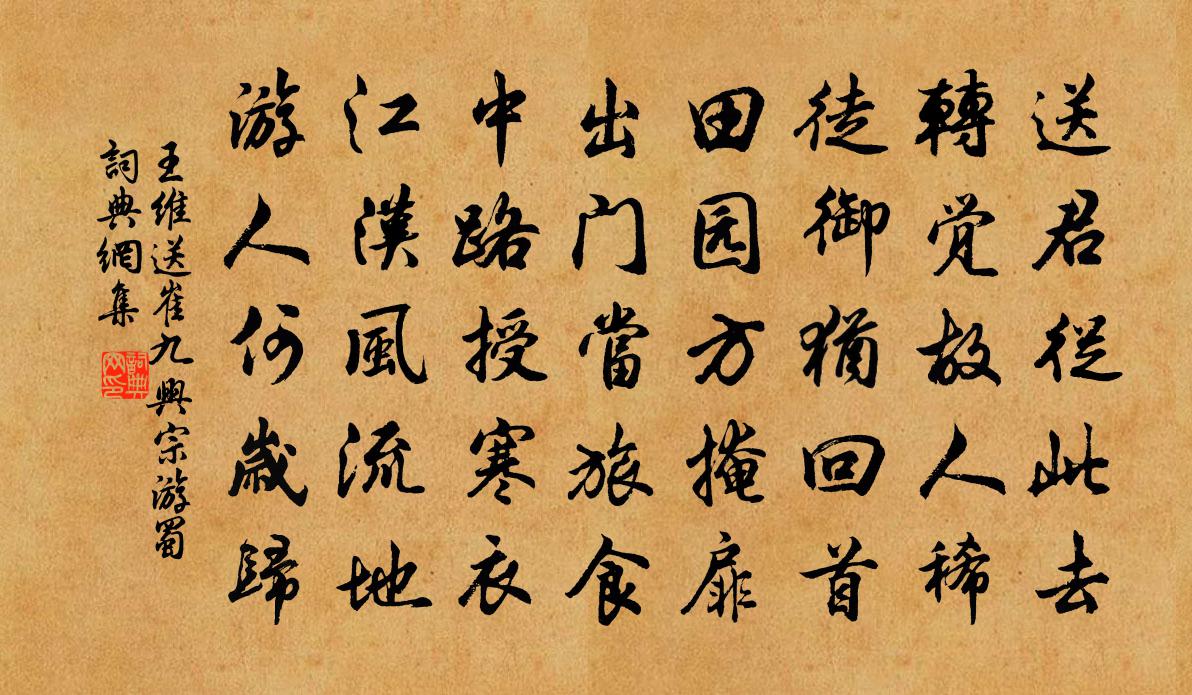 送君從此去
轉觉故人稀
徒御猶回首
田园方掩扉
出门當旅食
中路授寒衣
江漢風流地
游人何歲歸
王維送崔九興宗游蜀
詞典網集
詞典
网印